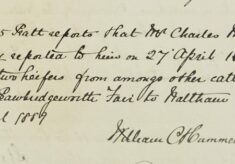 5 Pratt reports that Mr Charles
reported to him on 27 April 18
two heifers from amongst other catt
Sawbridgeworth Fair to Waltham
l 1889
William C Hummer